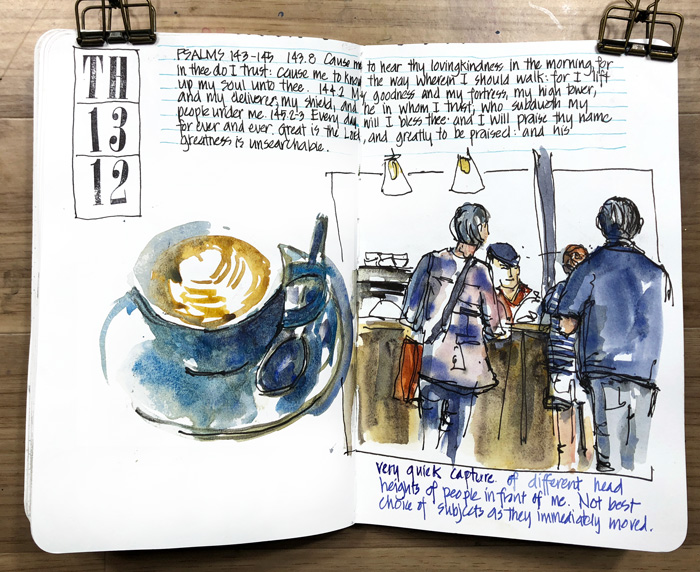 TH
13
12
PSALMS 143-145 143.8 Cause me to hear thy lovingkindness in the morning for
in thee do I trust: cause me to know the way wherein I should walk: for I lift
up my soul unto thee. 144.2 My goodness and my fortress, my high tower,
and my deliverer, my shield, and he in whom I trust, who subdueth my
people under me. 145.2-3 Every day will I bless thee: and I will praise thy name
for ever and ever. Great is the Lord, and greatly to be praised: and his
greatness is unsearchable.
very quick capture of different head
heights of people in front of me. Not best
choice of subjects as they immediately moved.